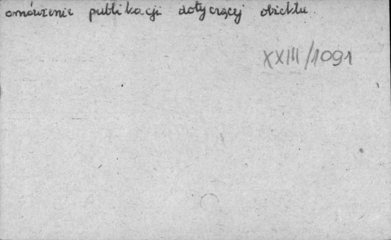 omówienie publikacji dotyczącej obiektu
XXIII/1091